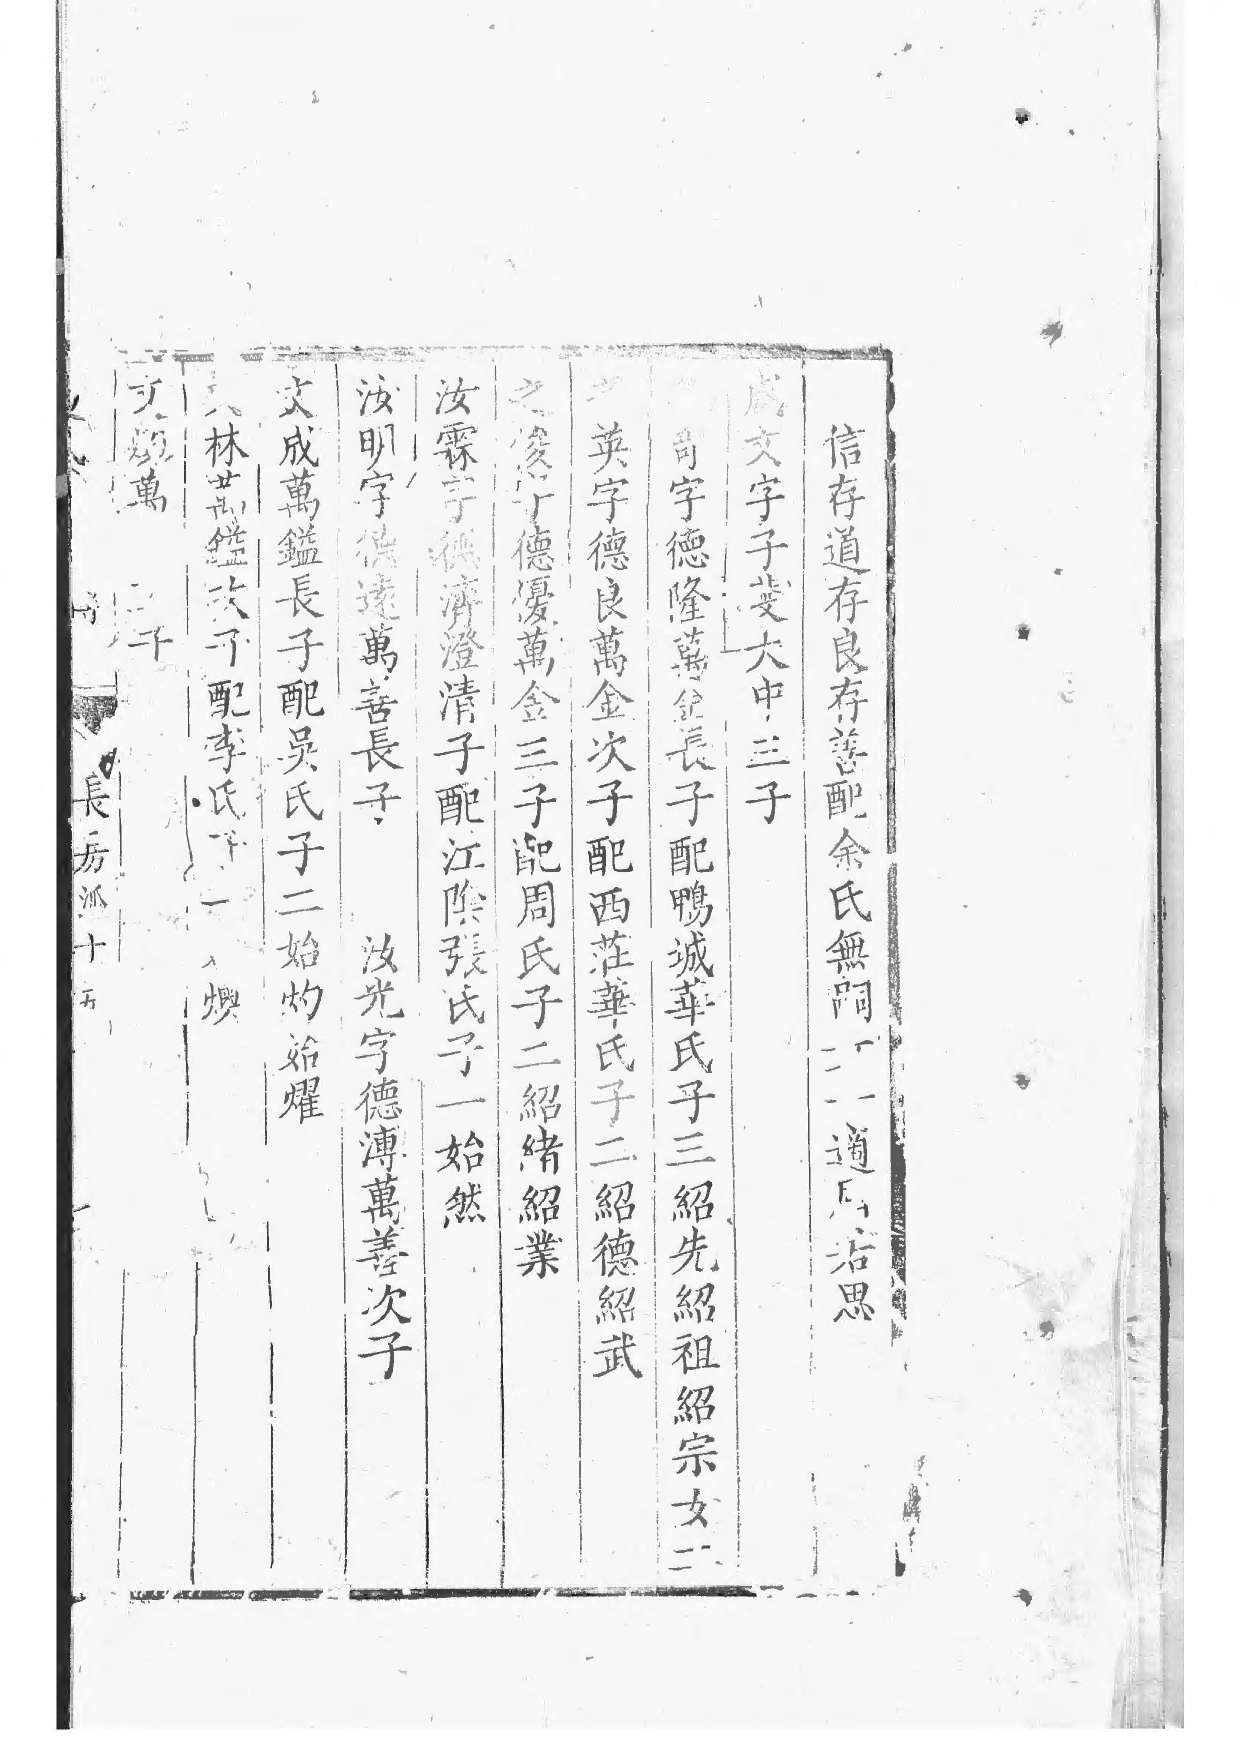 信存道存良存善配余氏無嗣 適 思
成文字子斐大中三子
字德隆萬金長子配鴨城華氏子三紹先紹祖紹宗女二
英字德良萬金次子配西莊華氏子二紹德紹武
之俊字德優萬金三子配周氏子二紹緒紹業
汝霖字德濟澄清子配江陰張氏子一始然
汝明字德遠萬善長子 汝光字德溥萬善次子
文成萬鎰長子配吳氏子二始灼始耀
林萬鎰次子配李氏子一 燠
文 萬 子
長房派十五